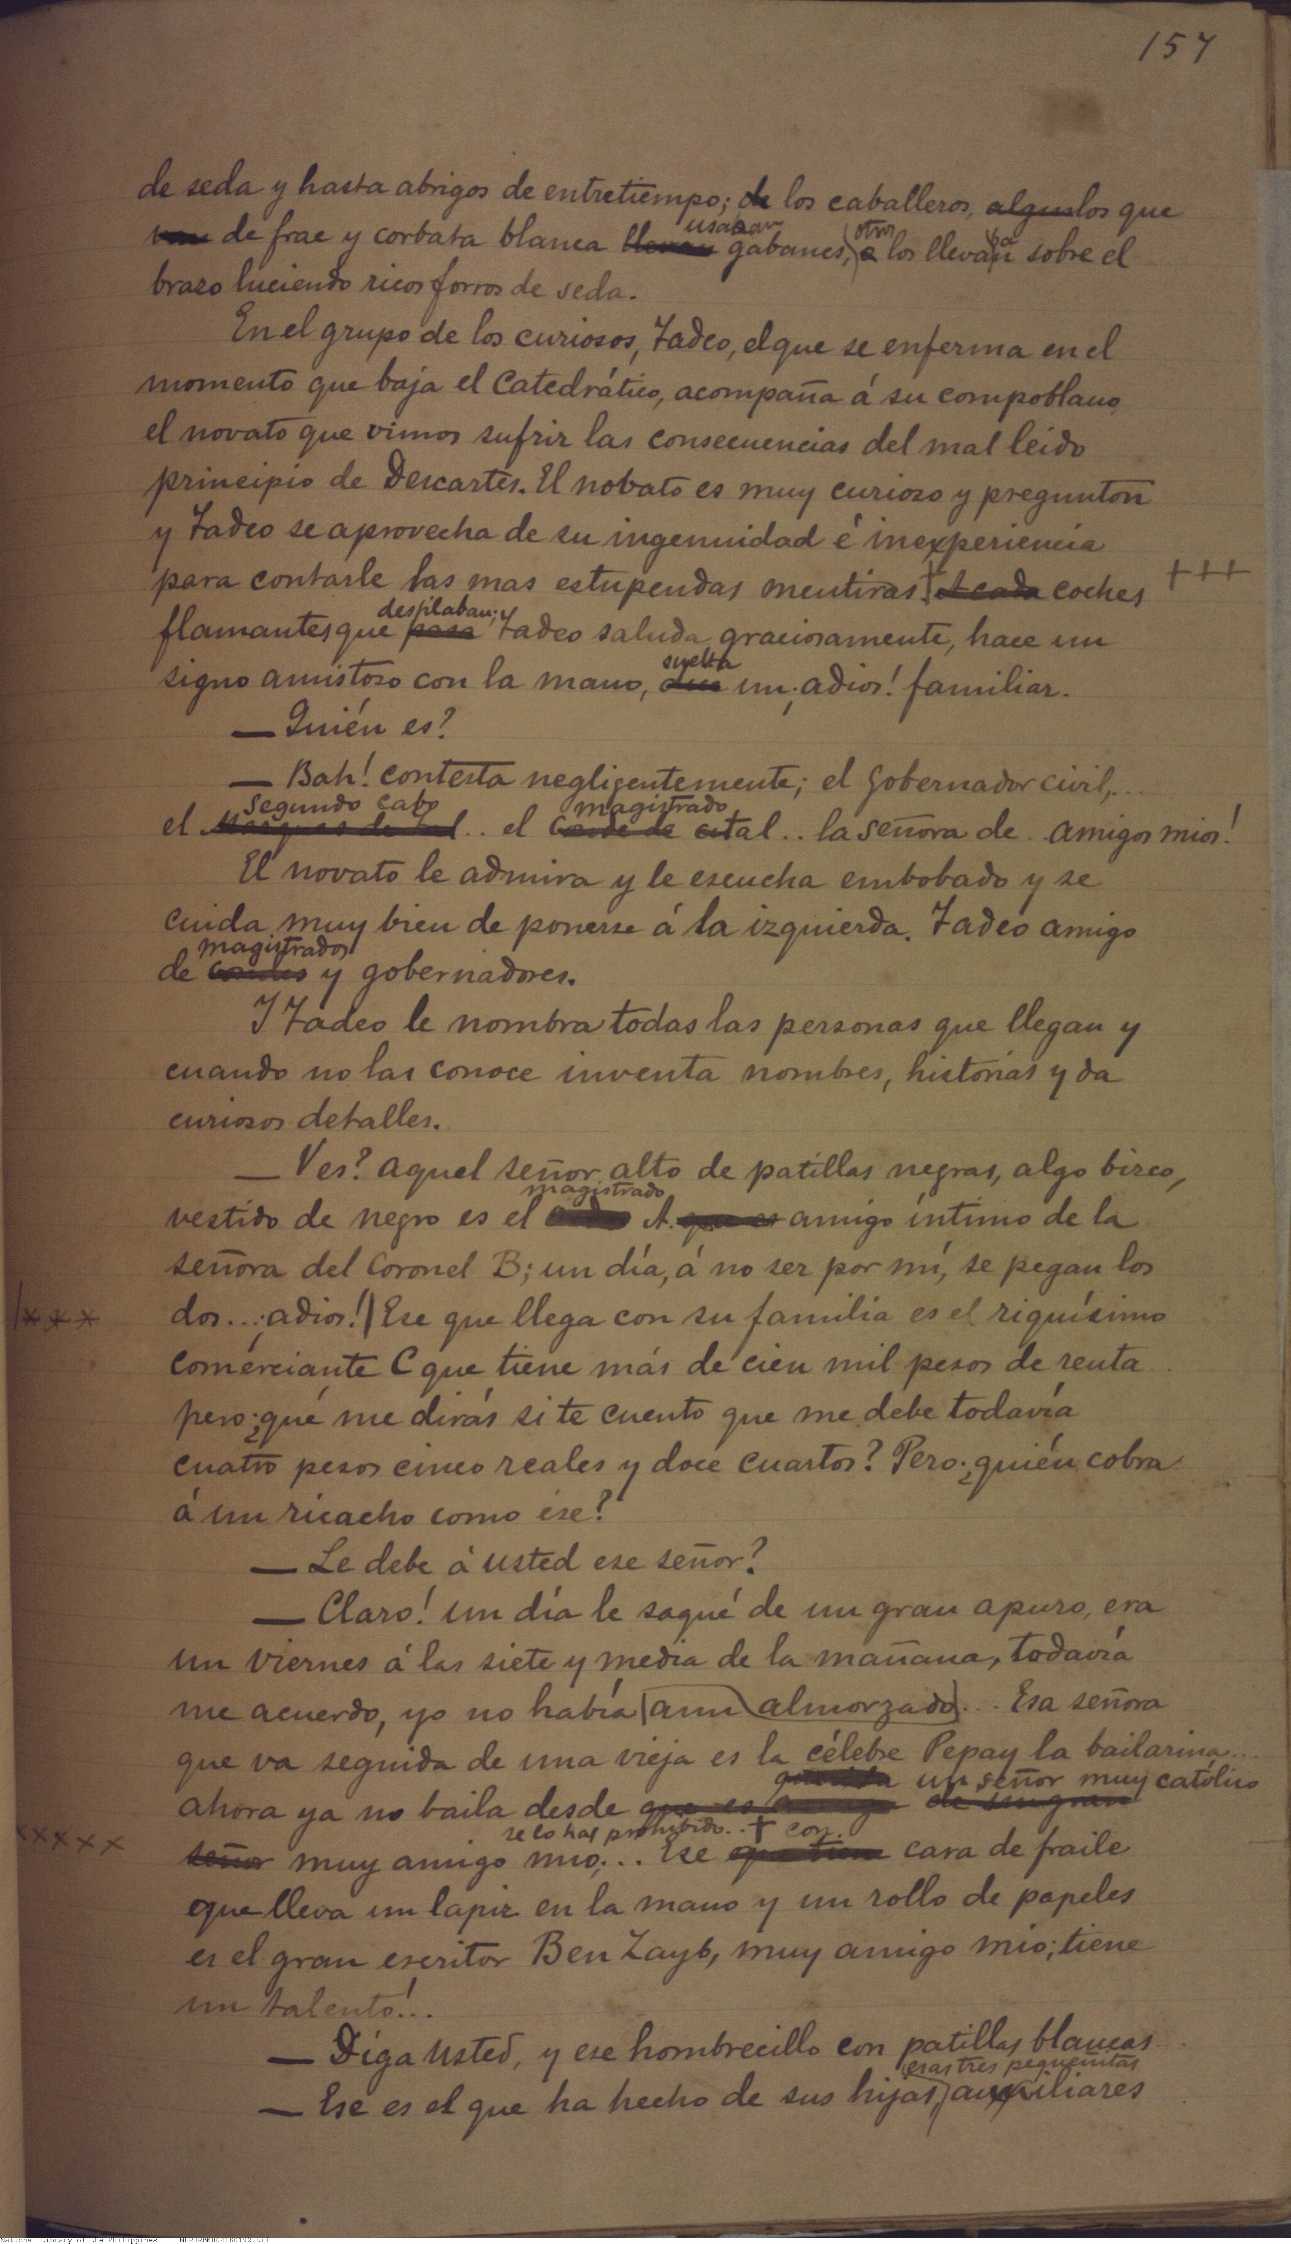 157
de seda y hasta abrigos de entretiempo; de los caballeros, algunos los que
usaban otros ba
van de frac y corbata blanca llevan gabanes, los llevan sobre el
brazo luciendo ricos forros de seda.
En el grupo de los curiosos, Tadeo, el que se enferma en el
momento que baja el Catedrático, acompaña á su compoblano
el novato que vimos sufrir las consecuencias del mal leido
principio de Descartes. El nobato es muy curioso y pregunton
y Tadeo se aprovecha de su ingenuidad é inexperiencia
para contarle las mas estupendas mentiras. A cada coches +++
desfilaban;
flamantes que pasa Tadeo saluda graciosamente, hace un
suelta
signo amistoso con la mano, un ¡adios! familiar.
— Quién es?
— Bah! contesta negligentemente; el Gobernador civil,...
Segundo Cabo magistrado
el Marques de tal.. el Conde de cital.. la señora de.. amigos mios!
El novato le admira y le escucha embobado y se
cuida muy bien de ponerse á la izquierda. Tadeo amigo
magistrados
de Condes y gobernadores.
Y Tadeo le nombra todas las personas que llegan y
cuando no las conoce inventa nombres, historias y da
curiosos detalles.
— Ves? aquel señor alto de patillas negras, algo bizco,
magistrado
vestido de negro es el A. que es amigo íntimo de la
señora del Coronel B; un día, á no ser por mí, se pegan los
|xxx dos...¡adios! Ese que llega con su familia es el riquísimo
comerciante C que tiene más de cien mil pesos de renta
pero ¿qué me dirás si te cuento que me debe todavía
cuatro pesos cinco reales y doce cuartos? Pero ¿quién cobra
á un ricacho como ése?
— Le debe á usted ese señor?
— Claro! un día le saqué de un gran apuro, era
un viernes á las siete y media de la mañana, todavía
me acuerdo, yo no había aun almorzado... Esa señora
que va seguida de una vieja es la célebre Pepay la bailarina...
un señor muy católico
ahora ya no baila desde que es amiga de un gran
se lo has prohibido..+ con
xxxxx señor muy amigo mio;... Ese que tiene cara de fraile
que lleva un lapiz en la mano y un rollo de papeles
es el gran escritor Ben Zayb, muy amigo mio; tiene
un talento!..
— Diga usted, y ese hombrecillo con patillas blancas..
esas tres pequeñitas
— Ese es el que ha hecho de sus hijas, auxiliares